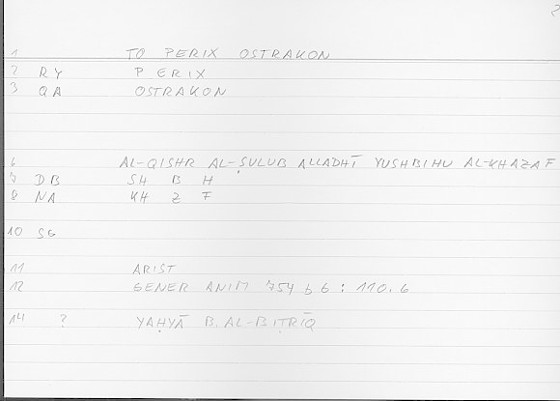 2
1 TO PERIX OSTRAKON
2 RY PERIX
3 QA OSTRAKON
6 AL-QISHR AL-ṢULUB ALLADHĪ YUSHBIHU AL-KHAZAF
7 DB SH B H
8 NA KH Z F
10 SG
11 ARIST
12 GENER ANIM 754 b 6 : 110.6
14 ? YAḤYĀ B. AL-BIṬRĪQ